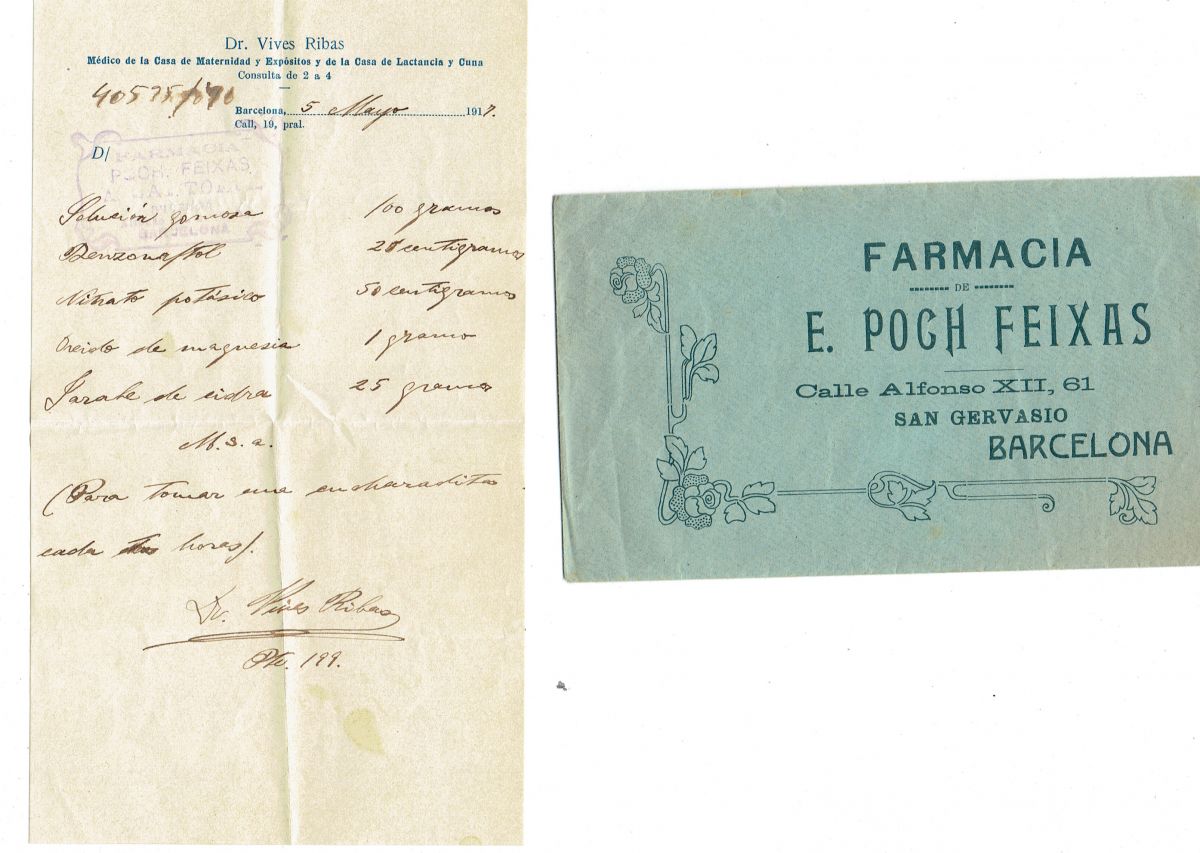 Dr. Vives Ribas
Médico de la Casa de Maternidad y Expósitos y de la Casa de Lactancia y Cuna
Consulta de 2 a 4
Barcelona, 5 Mayo 1917.
Call, 19, pral.
D/
FARMACIA
POCH FEIXAS
BARCELONA
Solución gomosa 100 gramos
Benzonaftol 20 centigramos
Nitrato potásico 50 centigramos
Oxido de magnesia 1 gramo
Jarabe de cidra 25 gramos
M. s. a.
(Para tomar una cucharadita
cada horas).
Dr. Vives Ribas
199.
FARMACIA
DE
E. POCH FEIXAS
Calle Alfonso XII, 61
SAN GERVASIO
BARCELONA